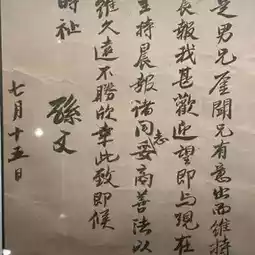 是男兄鑒聞兄有意出而維持
晨報我甚歡迎望即与現在
主持晨報諸同志妥商善法以
維久遠不勝欣幸此致即候
時祉
孫文
七月十五日